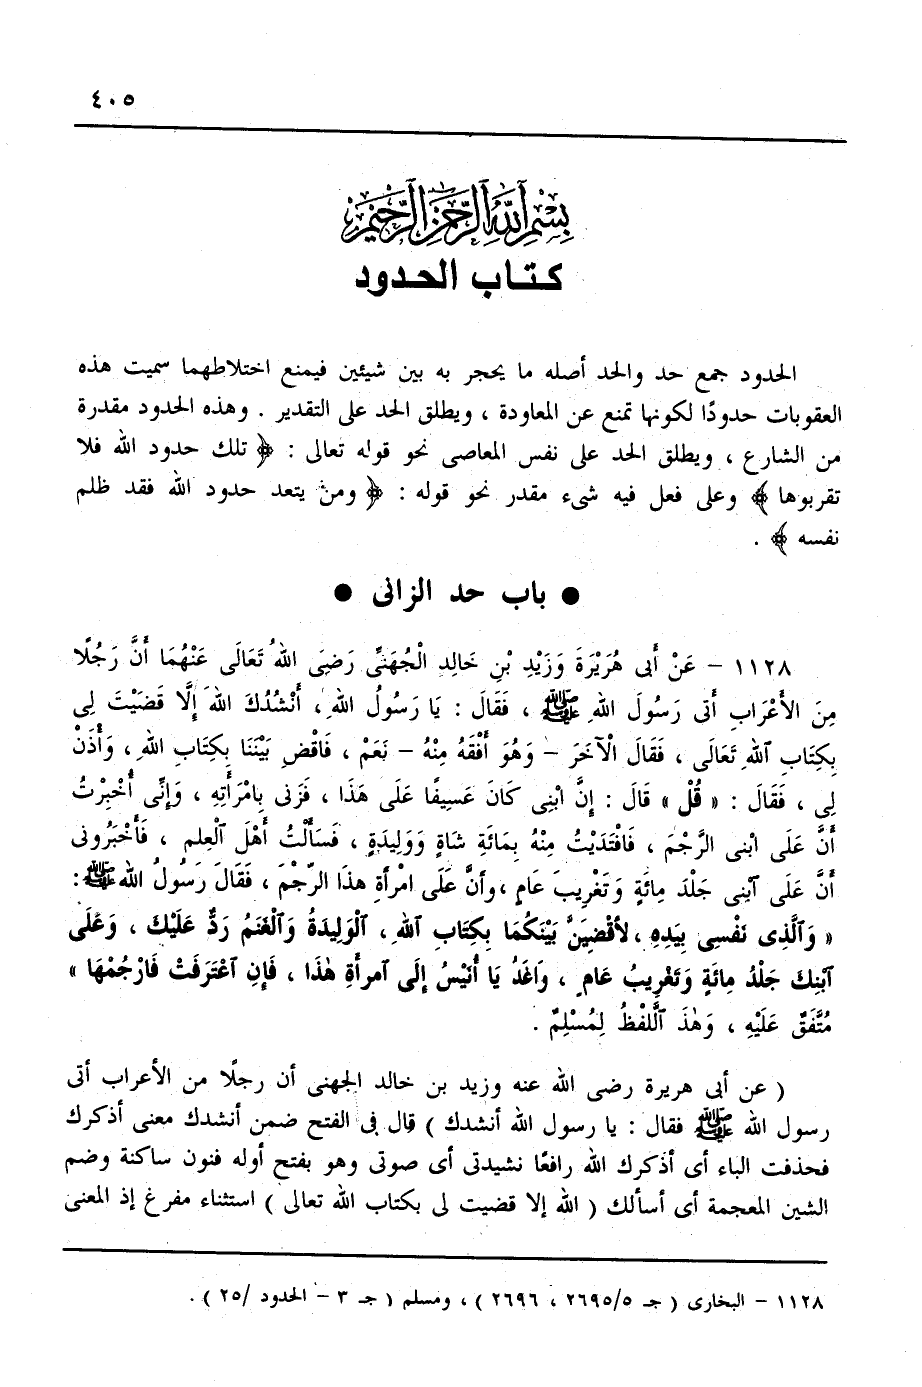 ٤٠٥
بِسْمِ اللَّهِ الرَّحْمَنِ الرَّحِيمِ
كتاب الحدود
الحدود جمع حد والحد أصله ما يحجر به بين شيئين فيمنع اختلاطهما سميت هذه
العقوبات حدودًا لكونها تمنع عن المعاودة ، ويطلق الحد على التقدير . وهذه الحدود مقدرة
من الشارع ، ويطلق الحد على نفس المعاصى نحو قوله تعالى : ﴿ تلك حدود الله فلا
تقربوها ﴾ وعلى فعل فيه شىء مقدر نحو قوله : ﴿ ومن يتعد حدود الله فقد ظلم
نفسه ﴾ .
● باب حد الزانى ●
١١٢٨ – عَنْ أَبِى هُرَيْرَةَ وَزَيْدِ بْنِ خَالِدِ الْجُهَنِىِّ رَضِىَ اللهُ تَعَالَى عَنْهُمَا أَنَّ رَجُلًا
مِنَ الأَعْرَابِ أَتَى رَسُولَ اللهِ ﷺ ، فَقَالَ : يَا رَسُولُ اللهِ ، أَنْشُدُكَ اللهَ إِلَّا قَضَيْتَ لِى
بِكِتَابِ ٱللهِ تَعَالَى ، فَقَالَ الْآخَرَ – وَهُوَ أَفْقَهُ مِنْهُ – نَعَمْ ، فَاقْضِ بَيْنَنَا بِكِتَابِ اللهِ ، وَأْذَنْ
لِى ، فَقَالَ : « قُلْ » قالَ : إِنَّ ابْنِى كَانَ عَسِيفًا عَلَى هَذَا ، فَزَنى بِامْرَأَتِهِ ، وَإِنِّى أُخْبِرْتُ
أَنَّ عَلَى ابْنِى الرَّجْمَ ، فَافْتَدَيْتُ مِنْهُ بِمَائَةِ شَاةٍ وَوَلِيدَةٍ ، فَسَأَلْتُ أَهْلَ ٱلْعِلمِ ، فَأَخْبَرُونى
أَنَّ عَلَى ٱبْنِى جَلْدَ مِائَةٍ وَتَغْرِيبَ عَامٍ ، وَأنَّ عَلَى امْرأَةِ هذَا الرَّجْمَ ، فَقَالَ رَسُولُ اللهِ ﷺ :
« وَٱلَّذِى نَفْسِى بِيَدِهِ ، لأقْضِيَنَّ بَيْنَكُمَا بِكِتَابِ ٱللهِ ، ٱلْوَلِيدَةُ وَٱلْغَنَمُ رَدٌّ عَلَيْكَ ، وَعَلَى
ٱبْنِكَ جَلْدُ مِائَةٍ وَتَغْرِيبُ عَامٍ ، وَاغْدُ يَا أُنَيْسُ إِلَى ٱمرأَةِ هٰذَا ، فَإِنِ ٱعْتَرَفَتْ فَارْجُمْهَا »
مُتَّفَقٌ عَلَيْهِ ، وَهٰذَ ٱللَّفْظُ لِمُسْلِمٌ .
( عن أبى هريرة رضى الله عنه وزيد بن خالد الجهنى أن رجلًا من الأعراب أتى
رسول الله ﷺ فقال : يا رسول الله أنشدك ) قال فى الفتح ضمن أنشدك معنى أذكرك
فحذفت الباء أى أذكرك الله رافعًا نشيدتى أى صوتى وهو بفتح أوله فنون ساكنة وضم
الشين المعجمة أى أسألك ( الله إلا قضيت لى بكتاب الله تعالى ) استثناء مفرغ إذ المعنى
١١٢٨ – البخارى ( جـ ٢٦٩٥/٥ ، ٢٦٩٦ ) ، ومسلم ( جـ ٣ – الحدود /٢٥ ) .